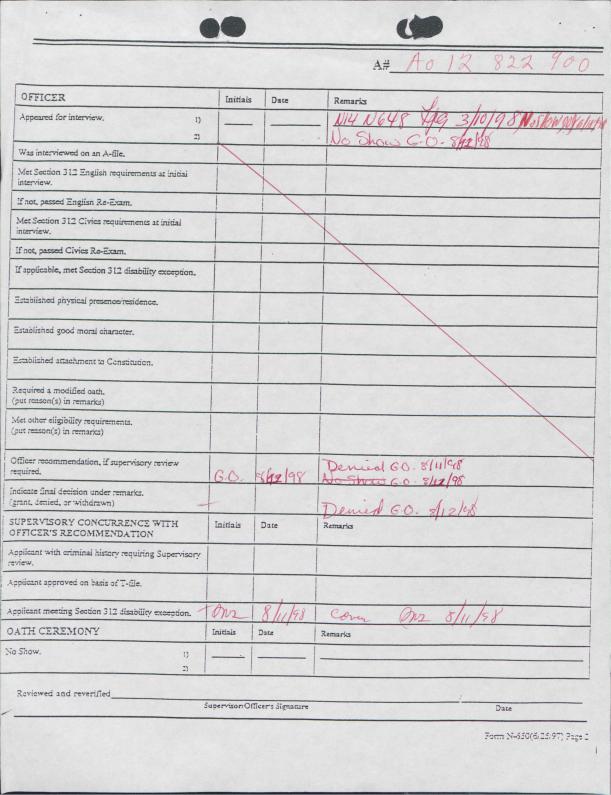 A# A0 12 822 900
OFFICER Initials Date Remarks
Appeared for interview. 1) N14 N648 3/10/98
2) No Show G.O. 8/12/98
Was interviewed on an A-file.
Met Section 312 English requirements at initial
interview.
If not, passed English Re-Exam.
Met Section 312 Civics requirements at initial
interview.
If not, passed Civics Re-Exam.
If applicable, met Section 312 disability exception.
Established physical presence/residence.
Established good moral character.
Established attachment to Constitution.
Required a modified oath.
(put reason(s) in remarks)
Met other eligibility requirements.
(put reason(s) in remarks)
Officer recommendation, if supervisory review
required. G.O. 8/12/98 Denied G.O. 8/11/98
No Show G.O. 8/12/98
Indicate final decision under remarks.
(grant, denied, or withdrawn) Denied G.O. 8/12/98
SUPERVISORY CONCURRENCE WITH
OFFICER'S RECOMMENDATION Initials Date Remarks
Applicant with criminal history requiring Supervisory
review.
Applicant approved on basis of T-file.
Applicant meeting Section 312 disability exception. 8/11/98 8/11/98
OATH CEREMONY Initials Date Remarks
No Show. 1)
2)
Reviewed and reverified
Supervisor/Officer's Signature Date
Form N-650(6/25/97) Page 2